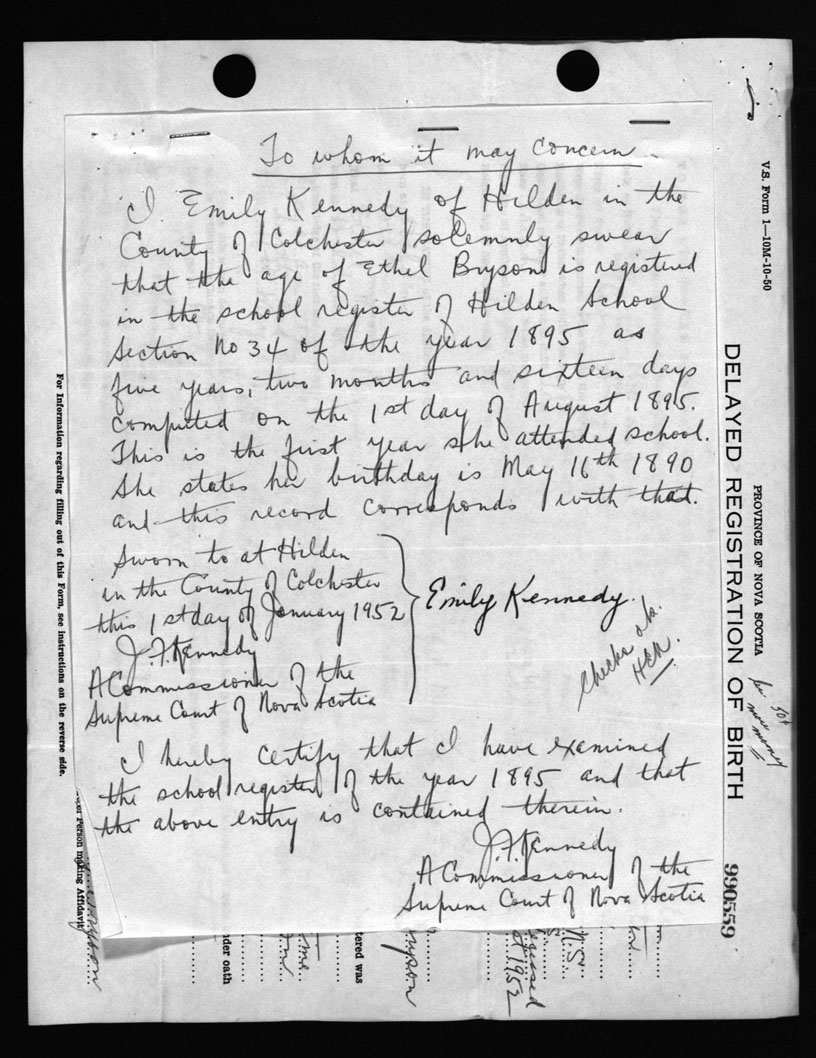 To whom it may concern.
I Emily Kennedy of Hilden in the
County of Colchester solemnly swear
that the age of Ethel Bryson is registered
in the school register of Hilden School
Section No 34 of the year 1895 as
five years, two months and sixteen days
computed on the 1st day of August 1895.
This is the first year she attended school.
She states her birthday is May 16th 1890
and this record corresponds with that.
Sworn to at Hilden
in the County of Colchester
this 1st day of January 1952
J. F. Kennedy
A Commissioner of the
Supreme Court of Nova Scotia
Emily Kennedy.
checks o.k.
I hereby certify that I have examined
the school register of the year 1895 and that
the above entry is contained therein.
J. F. Kennedy
A Commissioner of the
Supreme Court of Nova Scotia
V.S. Form 1—10M-10-50
PROVINCE OF NOVA SCOTIA
DELAYED REGISTRATION OF BIRTH
990559
50¢
For Information regarding filling out of this Form, see instructions on the reverse side.
Person making Affidavit
nder oath
tered was
N.S.
1952